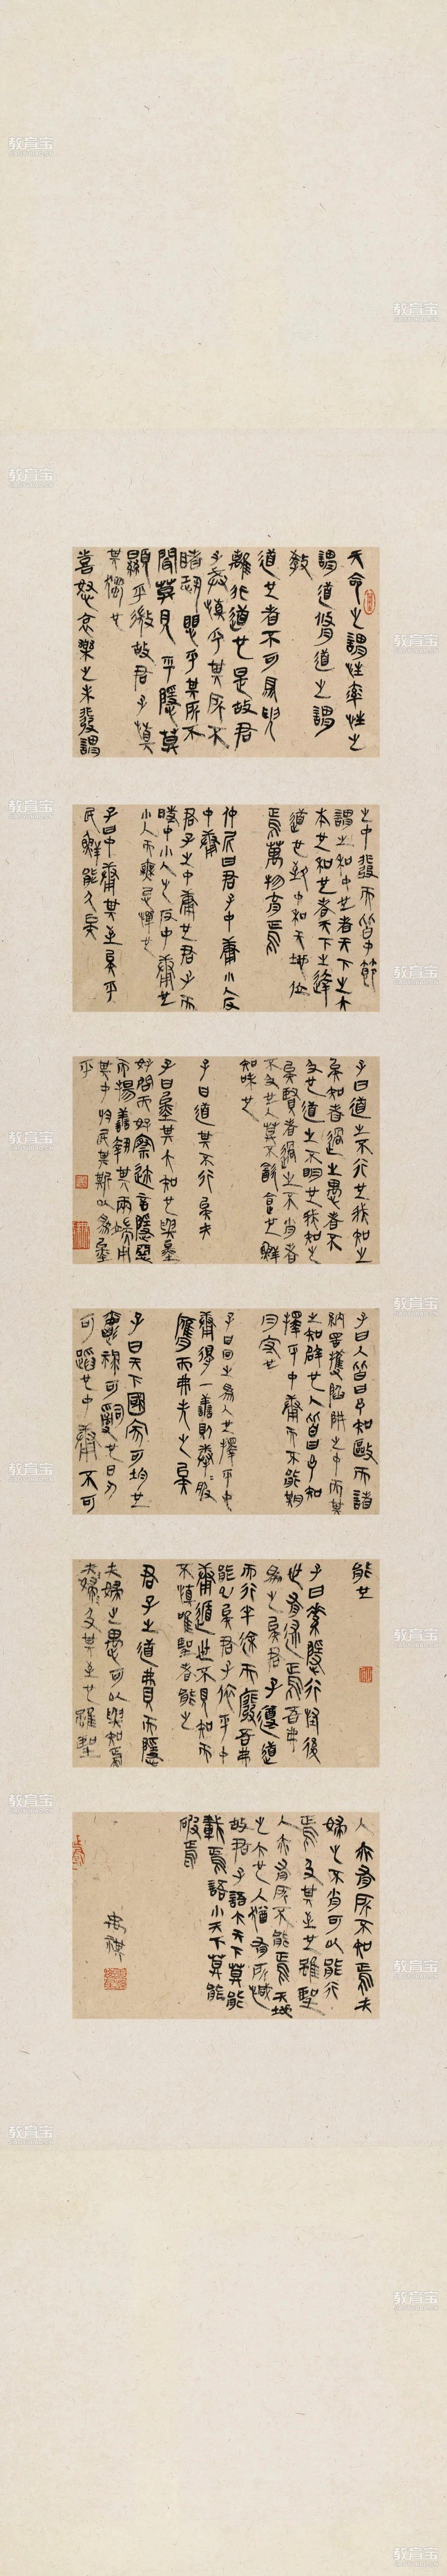 天命之謂性率性之
謂道脩道之謂
教
道也者不可須臾
離也可離非道也是故君
子戒慎乎其所不
睹恐懼乎其所不
聞莫見乎隱莫
顯乎微故君子慎
其獨也
喜怒哀樂之未發謂
之中發而皆中節
謂之和中也者天下之大
本也和也者天下之達
道也致中和天地位
焉萬物育焉
仲尼曰君子中庸小人反
中庸
君子之中庸也君子而
時中小人之反中庸也
小人而無忌憚也
子曰中庸其至矣乎
民鮮能久矣
子曰道之不行也我知之
矣知者過之愚者不
及也道之不明也我知之
矣賢者過之不肖者
不及也人莫不飲食也鮮
知味也
子曰道其不行矣夫
子曰舜其大知也與舜
好問而好察邇言隱惡
而揚善執其兩端用
其中於民其斯以為舜
乎
子曰人皆曰予知驅而諸
納罟擭陷阱之中而莫
之知辟也人皆曰予知
擇乎中庸而不能期
月守也
子曰回之為人也擇乎中
庸得一善則拳拳服
膺而弗失之矣
子曰天下國家可均也
爵祿可辭也白刃
可蹈也中庸不可
能也
子曰素隱行怪後
世有述焉吾弗
為之矣君子遵道
而行半途而廢吾弗
能已矣君子依乎中
庸遯世不見知而
不悔唯聖者能之
君子之道費而隱
夫婦之愚可以與知焉
及其至也雖聖
人亦有所不知焉夫
婦之不肖可以能行
焉及其至也雖聖
人亦有所不能焉天地
之大也人猶有所憾
故君子語大天下莫能
載焉語小天下莫能
破焉
教育宝